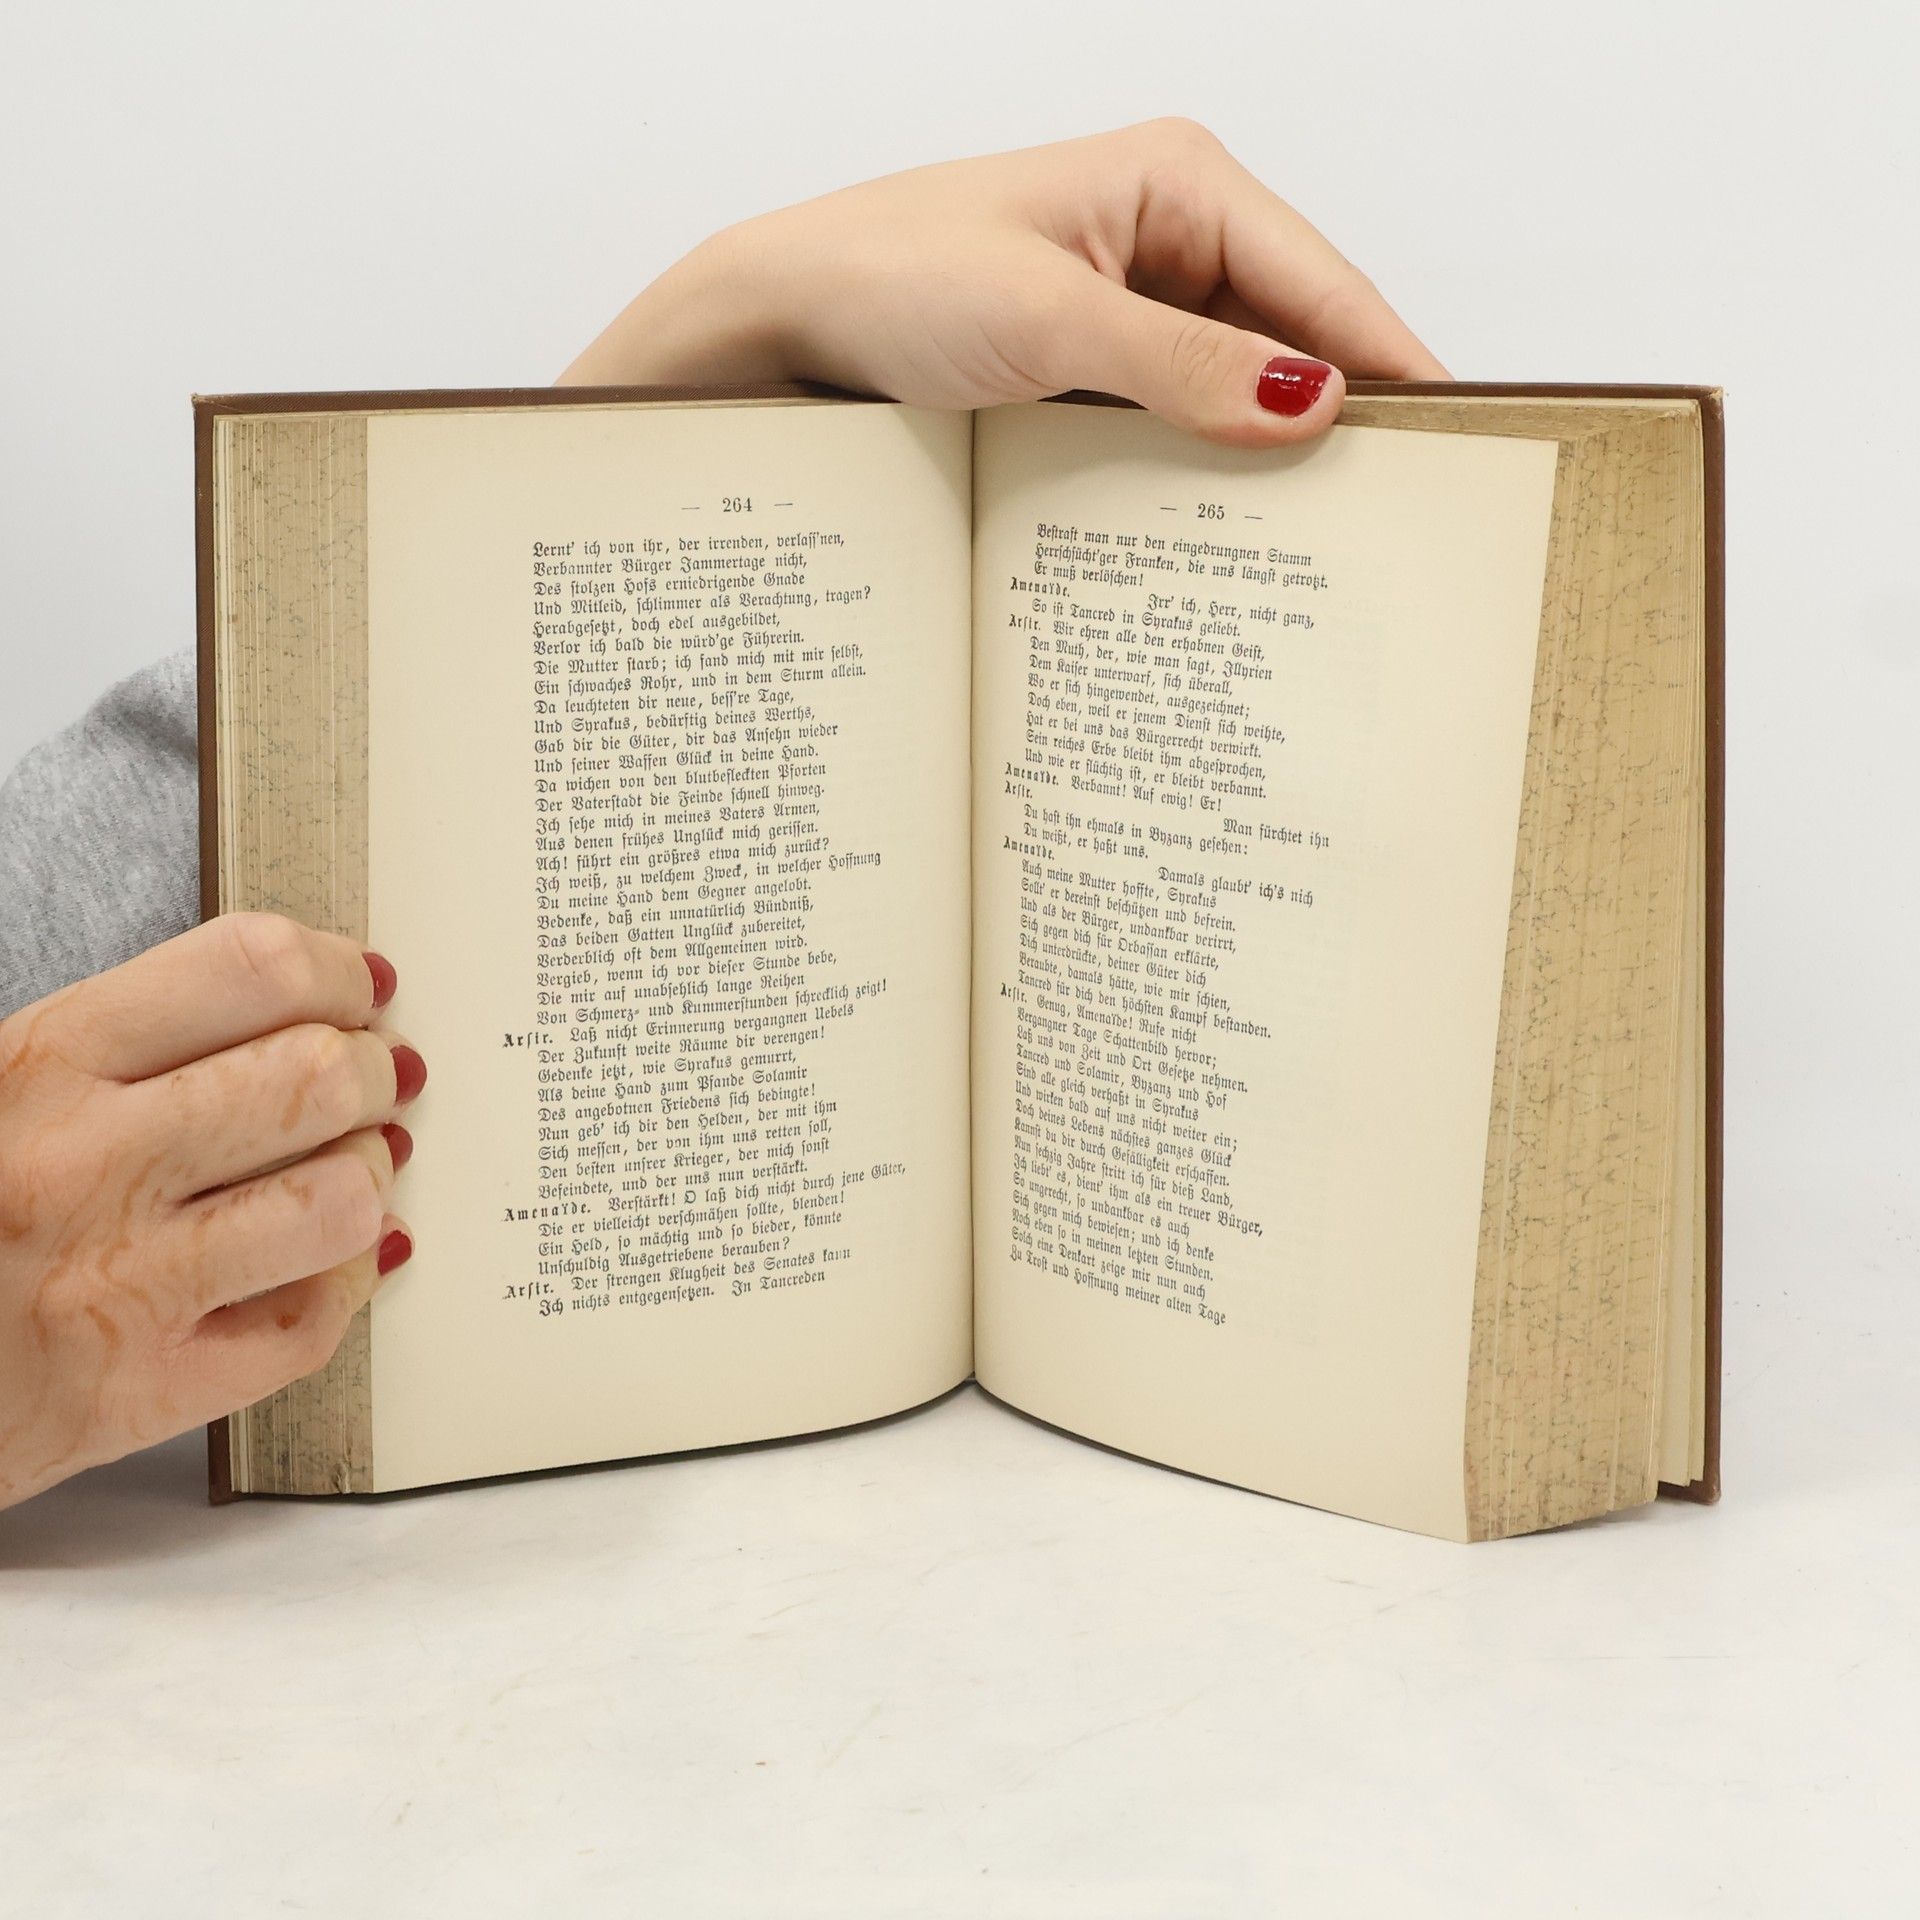 — 264 —
Lernt' ich von ihr, der irrenden, verlaff'nen,
Verbannter Bürger Jammertage nicht,
Des stolzen Hofs erniedrigende Gnade
Und Mitleid, schlimmer als Verachtung, tragen?
Herabgesetzt, doch edel ausgebildet,
Verlor ich bald die würd'ge Führerin.
Die Mutter starb; ich fand mich mit mir selbst,
Ein schwaches Rohr, und in dem Sturm allein.
Da leuchteten dir neue, bess're Tage,
Und Syrakus, bedürftig deines Werths,
Gab dir die Güter, dir das Ansehn wieder
Und seiner Waffen Glück in deine Hand.
Da wichen von den blutbefleckten Pforten
Der Vaterstadt die Feinde schnell hinweg.
Ich sehe mich in meines Vaters Armen,
Aus denen frühes Unglück mich gerissen.
Ach! führt ein größres etwa mich zurück?
Ich weiß, zu welchem Zweck, in welcher Hoffnung
Du meine Hand dem Gegner angelobt.
Bedenke, daß ein unnatürlich Bündniß,
Das beiden Gatten Unglück zubereitet,
Verderblich oft dem Allgemeinen wird.
Vergieb, wenn ich vor dieser Stunde bebe,
Die mir auf unabsehlich lange Reihen
Von Schmerz- und Kummerstunden schrecklich zeigt!
Arsir. Laß nicht Erinnerung vergangnen Uebels
Der Zukunft weite Räume dir verengen!
Gedenke jetzt, wie Syrakus gemurrt,
Als deine Hand zum Pfande Solamir
Des angebotnen Friedens sich bedingte!
Nun geb' ich dir den Helden, der mit ihm
Sich messen, der von ihm uns retten soll,
Den besten unsrer Krieger, der mich sonst
Befeindete, und der uns nun verstärkt.
Amenaïde. Verstärkt! O laß dich nicht durch jene Güter,
Die er vielleicht verschmähen sollte, blenden!
Ein Held, so mächtig und so bieder, könnte
Unschuldig Ausgetriebene berauben?
Arsir. Der strengen Klugheit des Senates kann
Ich nichts entgegensetzen. In Tancreden
— 265 —
Bestraft man nur den eingedrungnen Stamm
Herrschsücht'ger Franken, die uns längst getrotzt.
Er muß verlöschen!
Amenaïde. Irr' ich, Herr, nicht ganz,
So ist Tancred in Syrakus geliebt.
Arsir. Wir ehren alle den erhabnen Geist,
Den Muth, der, wie man sagt, Illyrien
Dem Kaiser unterwarf, sich überall,
Wo er sich hingewendet, ausgezeichnet;
Doch eben, weil er jenem Dienst sich weihte,
Hat er bei uns das Bürgerrecht verwirkt.
Sein reiches Erbe bleibt ihm abgesprochen,
Und wie er flüchtig ist, er bleibt verbannt.
Amenaïde. Verbannt! Auf ewig! Er!
Arsir. Man fürchtet ihn
Du hast ihn ehmals in Byzanz gesehen:
Du weißt, er haßt uns.
Amenaïde. Damals glaubt' ich's nich
Auch meine Mutter hoffte, Syrakus
Sollt' er dereinst beschützen und befrein.
Und als der Bürger, undankbar verirrt,
Sich gegen dich für Orbassan erklärte,
Dich unterdrückte, deiner Güter dich
Beraubte, damals hätte, wie mir schien,
Tancred für dich den höchsten Kampf bestanden.
Arsir. Genug, Amenaïde! Rufe nicht
Vergangner Tage Schattenbild hervor;
Laß uns von Zeit und Ort Gesetze nehmen.
Tancred und Solamir, Byzanz und Hof
Sind alle gleich verhaßt in Syrakus
Und wirken bald auf uns nicht weiter ein;
Doch deines Lebens nächstes ganzes Glück
Kannst du dir durch Gefälligkeit erschaffen.
Nun sechzig Jahre stritt ich für dieß Land,
Ich liebt' es, dient' ihm als ein treuer Bürger,
So ungerecht, so undankbar es auch
Sich gegen mich bewiesen; und ich denke
Noch eben so in meinen letzten Stunden.
Solch eine Denkart zeige mir nun auch
Zu Trost und Hoffnung meiner alten Tage